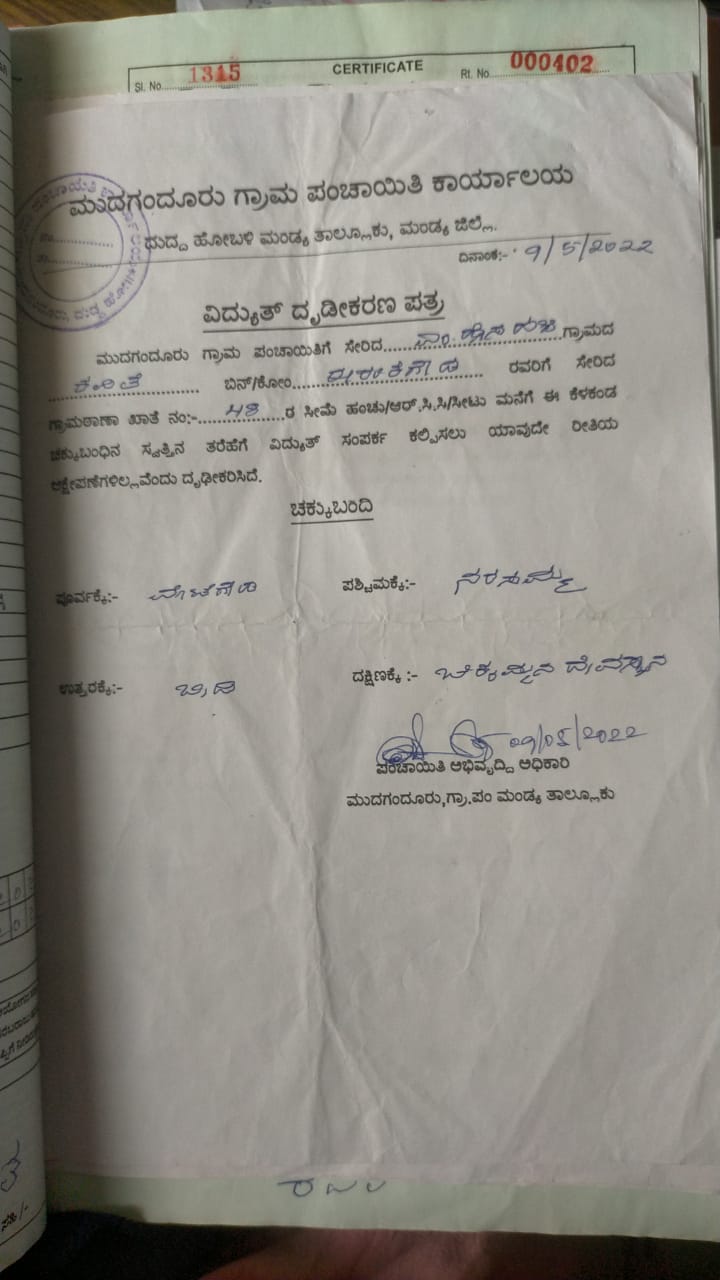 CERTIFICATE
Sl. No. 1315
Rt. No. 000402
ಮುದಗಂದೂರು ಗ್ರಾಮ ಪಂಚಾಯಿತಿ ಕಾರ್ಯಾಲಯ
ದುದ್ದ ಹೋಬಳಿ ಮಂಡ್ಯ ತಾಲ್ಲೂಕು, ಮಂಡ್ಯ ಜಿಲ್ಲೆ.
ದಿನಾಂಕ:- 9/5/2022
ವಿದ್ಯುತ್ ದೃಡೀಕರಣ ಪತ್ರ
ಮುದಗಂದೂರು ಗ್ರಾಮ ಪಂಚಾಯಿತಿಗೆ ಸೇರಿದ ಗ್ರಾಮದ
ಕವಿತೆ ಬಿನ್/ಕೋಂ ರವರಿಗೆ ಸೇರಿದ
ಗ್ರಾಮಠಾಣಾ ಖಾತೆ ನಂ:- 48 ರ ಸೀಮೆ ಹಂಚು/ಆರ್.ಸಿ.ಸಿ/ಸೀಟು ಮನೆಗೆ ಈ ಕೆಳಕಂಡ
ಚಕ್ಕುಬಂಧಿನ ಸ್ವತ್ತಿನ ತೆರೆಹೆಗೆ ವಿದ್ಯುತ್ ಸಂಪರ್ಕ ಕಲ್ಪಿಸಲು ಯಾವುದೇ ರೀತಿಯ
ಆಕ್ಷೇಪಣೆಗಳಿಲ್ಲವೆಂದು ದೃಢೀಕರಿಸಿದೆ.
ಚಕ್ಕುಬಂದಿ
ಪೂರ್ವಕ್ಕೆ:- ಪಶ್ಚಿಮಕ್ಕೆ:- ನರಸಮ್ಮ
ಉತ್ತರಕ್ಕೆ:- ಬೀದಿ ದಕ್ಷಿಣಕ್ಕೆ :- ಚಿಕ್ಕಮ್ಮನ ದೇವಸ್ಥಾನ
09/05/2022
ಪಂಚಾಯಿತಿ ಅಭಿವೃದ್ದಿ ಅಧಿಕಾರಿ
ಮುದಗಂದೂರು,ಗ್ರಾ.ಪಂ ಮಂಡ್ಯ ತಾಲ್ಲೂಕು